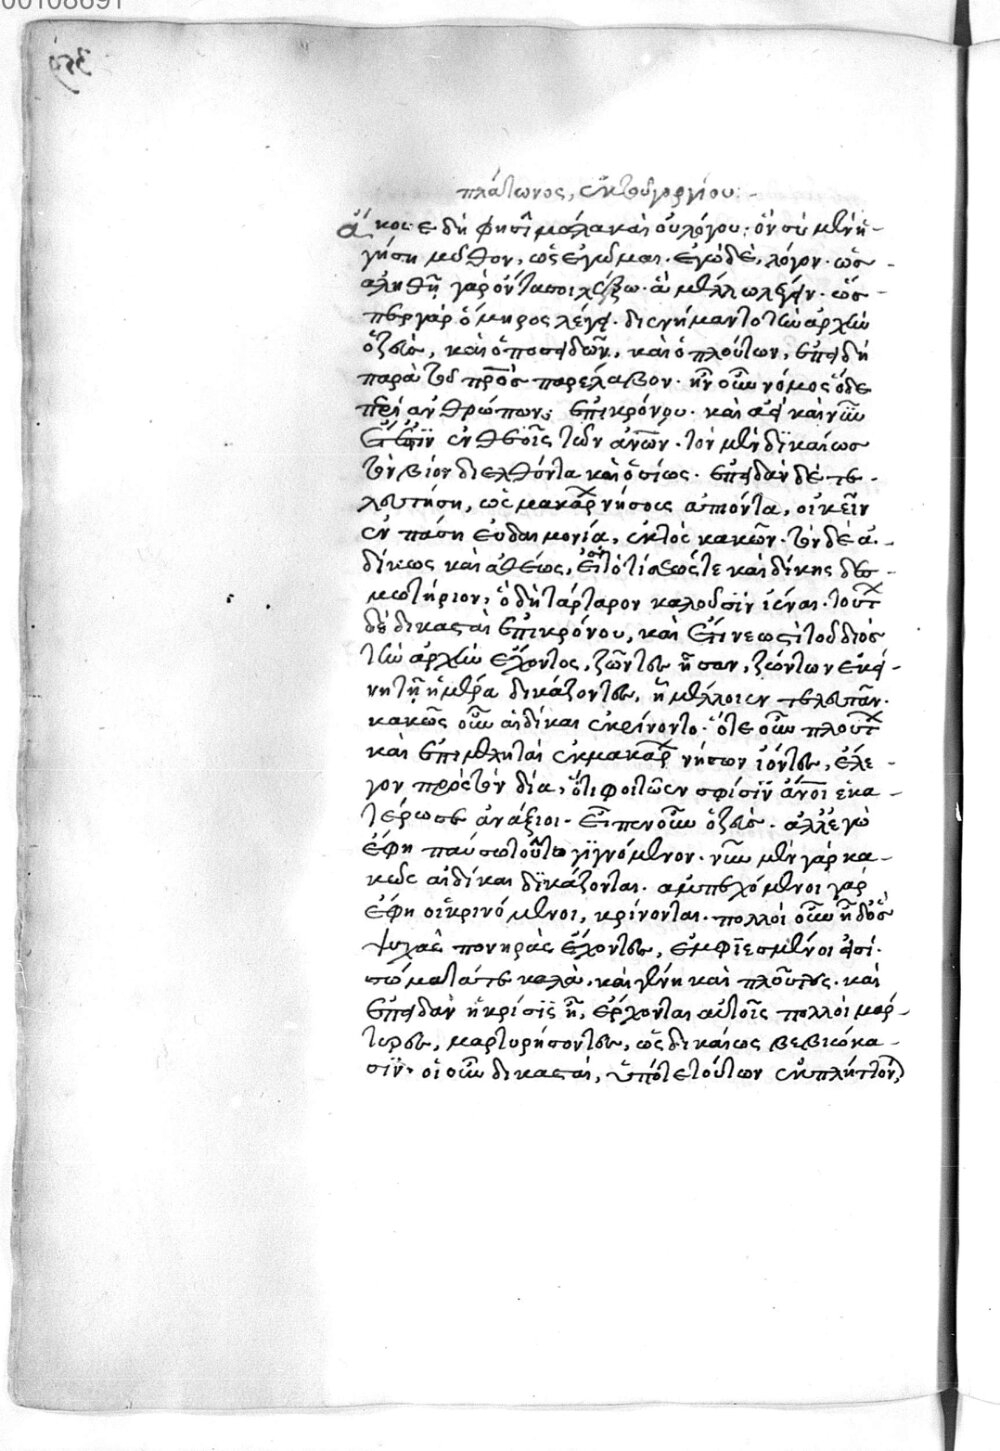 00108691
πλάτωνος, ἐκ τοῦ γοργίου:-
ἄκουε δή φησὶ μάλα καλοῦ λόγου· ὃν σὺ μὲν ἡ-
γήση μῦθον, ὡς ἐγῶμαι. ἐγὼ δὲ, λόγον. ὡς
ἀληθῆ γὰρ ὄντα σοι λέξω. ἃ μέλλω λέγειν. ὥσ-
περ γὰρ ὅμηρος λέγει. διενείμαντο τὴν ἀρχὴν
ὁ ζεὺς, καὶ ὁ ποσειδῶν, καὶ ὁ πλούτων, ἐπειδὴ
παρὰ τοῦ πρς παρέλαβον. ἦν οὖν νόμος ὅδε
περὶ ανθρώπων, ἐπὶ κρόνου. καὶ ἀεὶ καὶ νῦν
ἔτι ἔστιν ἐν θεοῖς τῶν ἀνων. τὸν μὲν δικαίως
τὸν βίον διελθόντα καὶ ὁσίως. ἐπειδὰν δὲ τε-
λευτήση, ὡς μακάρ νήσους ἀπιόντα, οἰκεῖν
ἐν πάση εὐδαιμονία, ἐκτὸς κακῶν. τὸν δὲ ἀ-
δίκως καὶ ἀθέως, εἰς τὸ τίσεώς τε καὶ δίκης δεσ-
μωτήριον, ὃ δὴ τάρταρον καλοῦσιν ἰέναι. τούτ
δὲ δικασταὶ ἐπὶ κρόνου, καὶ ἔτι νεωστὶ τοῦ διὸς
τὴν ἀρχὴν ἔχοντος, ζῶντες ἦσαν, ζώντων ἐκεί-
νη τῆ ἡμέρα δικάζοντες, ἧ μέλλοιεν τελευτᾶν.
κακῶς οὖν αἱ δίκαι ἐκρίνοντο. ὅτε οὖν πλούτ
καὶ ἐπιμεληταὶ ἐκ μακάρ νήσων ἰόντες, ἔλε-
γον πρὸς τὸν δία, ὅτι φοιτῶεν σφίσιν ἄνοι ἑκα-
τέρωσε ἀνάξιοι. εἶπεν οὖν ὁ ζεύς. ἀλλ' ἐγὼ
ἔφη παύσω τοῦτο γιγνόμενον. νῦν μὲν γὰρ κα-
κῶς αἱ δίκαι δικάζονται. ἀμπεχόμενοι γὰρ
ἔφη οἱ κρινόμενοι, κρίνονται. πολλοὶ οὖν ἦ δ' ὃς
ψυχὰς πονηρὰς ἔχοντες, ἐμφιεσμένοι εἰσὶ.
σώματά τε καλὰ. καὶ γένη καὶ πλούτους. καὶ
ἐπειδὰν ἡ κρίσις ἦ, ἔρχονται αὐτοῖς πολλοὶ μάρ-
τυρες, μαρτυρήσοντες, ὡς δικαίως βεβιώκα-
σιν. οἱ οὖν δικασταὶ, ὑπό τε τούτων ἐκπλήττον,